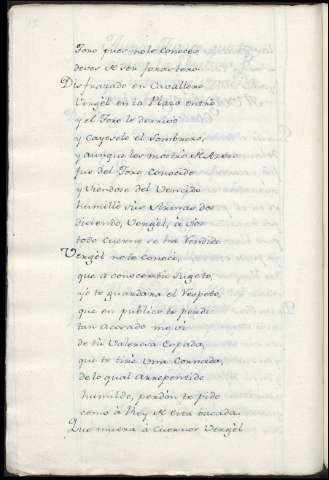 Toro pues no te conoces
deves de ser forastero
Disfrazado en Cavallero
Vergèl en la Plaza entrò
y el Toro le derrivò
y cayosele el Sombrero,
y aunque les mostrò el Azero
fue del Toro Conocido
y viendose del Vencido
humillò sus Armas dos
diciendo, Vergèl, à Vos
todo Cuerno se ha Rendido
Vergèl no te Conoci,
que a conocer tu Sugeto,
yò te guardara el Respeto,
que en publico te perdi
tan Acosado me vi
de tu Valencia Espada,
que te tirè Una Cornada,
de lo qual Arrepentido
humilde, perdòn te pido
como à Rey de esta bacada.
Que muera à Cuernos Vergèl